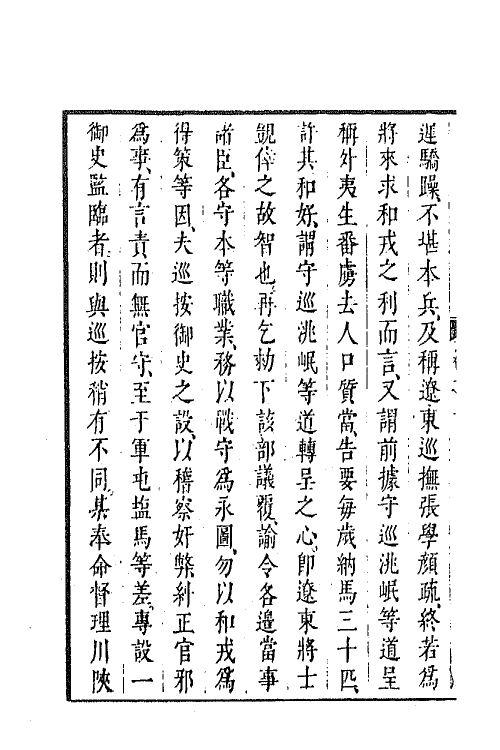 遲驕躁不堪本兵及稱遼東巡撫張學顔疏終若爲
將來求和戎之利而言又謂前據守巡洮岷等道呈
稱外夷生番虜去人口質當告要每歲納馬三十匹
許其和好謂守巡洮岷等道轉呈之心卽遼東將士
覬倖之故智也再乞勑下該部議覆諭令各邉當事
諸臣各守本等職業務以戰守爲永圖勿以和戎爲
得策等因夫巡按御史之設以稽察奸弊糾正官邪
爲事有言責而無官守至于軍屯塩馬等差專設一
御史監臨者則與巡按稍有不同其奉命督理川陜